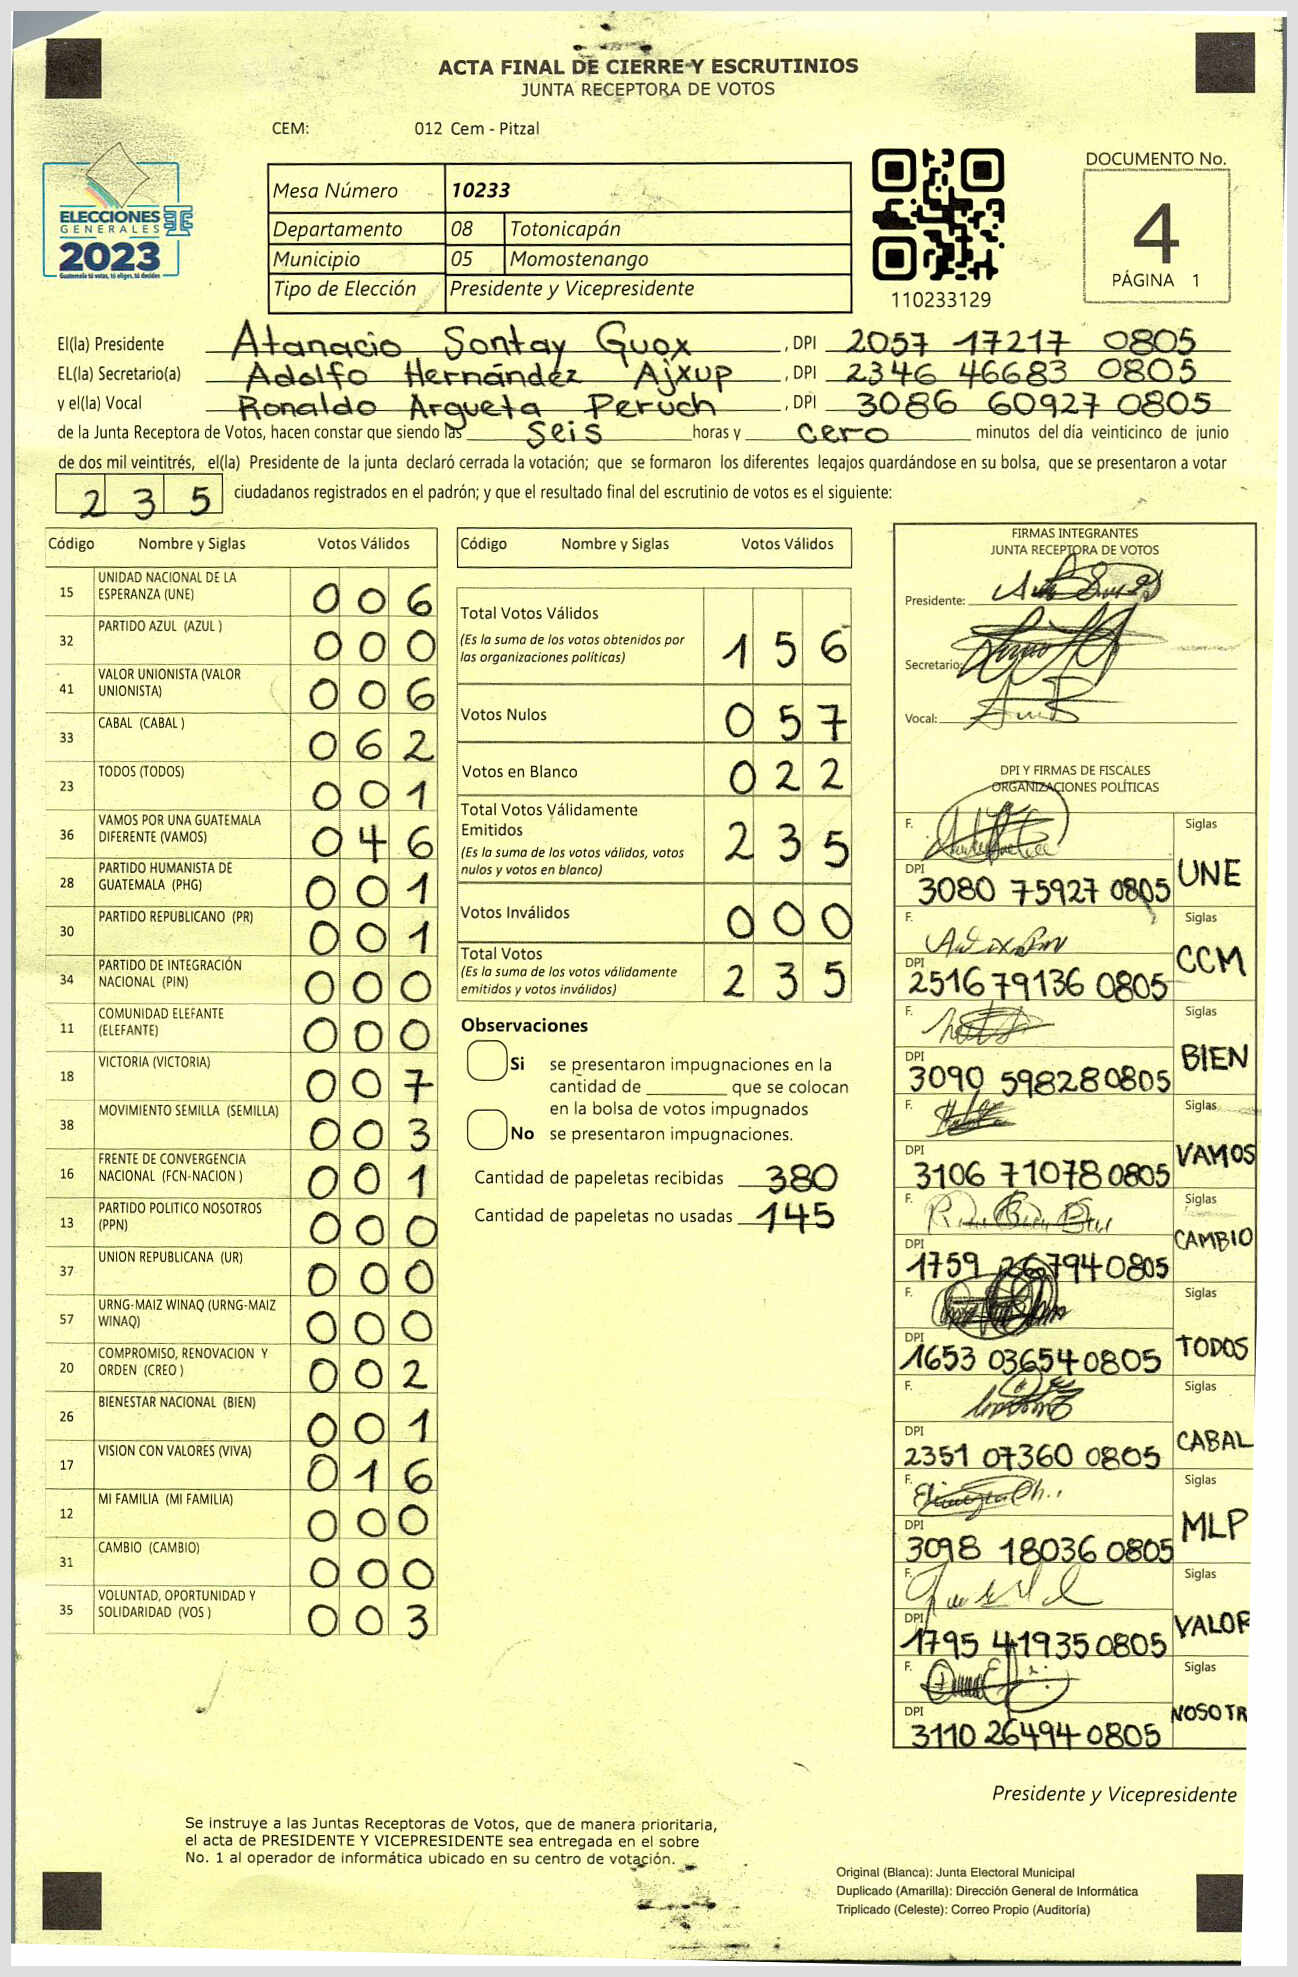 ACTA FINAL DE CIERRE Y ESCRUTINIOS
JUNTA RECEPTORA DE VOTOS
CEM: 012 Cem - Pitzal
ELECCIONES
GENERALES
TSE
2023
Guatemala tú votas, tú eliges, tú decides
Mesa Número 10233
Departamento 08 Totonicapán
Municipio 05 Momostenango
Tipo de Elección Presidente y Vicepresidente
110233129
DOCUMENTO No.
4
PÁGINA 1
El(la) Presidente Atanacio Sontay Guox , DPI 2057 17217 0805
EL(la) Secretario(a) Adolfo Hernández Ajxup , DPI 2346 46683 0805
y el(la) Vocal Ronaldo Argueta Peruch , DPI 3086 60927 0805
de la Junta Receptora de Votos, hacen constar que siendo las seis horas y cero minutos del día veinticinco de junio
de dos mil veintitrés, el(la) Presidente de la junta declaró cerrada la votación; que se formaron los diferentes legajos guardándose en su bolsa, que se presentaron a votar
2 3 5 ciudadanos registrados en el padrón; y que el resultado final del escrutinio de votos es el siguiente:
Código Nombre y Siglas Votos Válidos
15 UNIDAD NACIONAL DE LA ESPERANZA (UNE) 0 0 6
32 PARTIDO AZUL (AZUL ) 0 0 0
41 VALOR UNIONISTA (VALOR UNIONISTA) 0 0 6
33 CABAL (CABAL ) 0 6 2
23 TODOS (TODOS) 0 0 1
36 VAMOS POR UNA GUATEMALA DIFERENTE (VAMOS) 0 4 6
28 PARTIDO HUMANISTA DE GUATEMALA (PHG) 0 0 1
30 PARTIDO REPUBLICANO (PR) 0 0 1
34 PARTIDO DE INTEGRACIÓN NACIONAL (PIN) 0 0 0
11 COMUNIDAD ELEFANTE (ELEFANTE) 0 0 0
18 VICTORIA (VICTORIA) 0 0 7
38 MOVIMIENTO SEMILLA (SEMILLA) 0 0 3
16 FRENTE DE CONVERGENCIA NACIONAL (FCN-NACION ) 0 0 1
13 PARTIDO POLITICO NOSOTROS (PPN) 0 0 0
37 UNION REPUBLICANA (UR) 0 0 0
57 URNG-MAIZ WINAQ (URNG-MAIZ WINAQ) 0 0 0
20 COMPROMISO, RENOVACION Y ORDEN (CREO ) 0 0 2
26 BIENESTAR NACIONAL (BIEN) 0 0 1
17 VISION CON VALORES (VIVA) 0 1 6
12 MI FAMILIA (MI FAMILIA) 0 0 0
31 CAMBIO (CAMBIO) 0 0 0
35 VOLUNTAD, OPORTUNIDAD Y SOLIDARIDAD (VOS ) 0 0 3
Código Nombre y Siglas Votos Válidos
Total Votos Válidos
(Es la suma de los votos obtenidos por
las organizaciones políticas) 1 5 6
Votos Nulos 0 5 7
Votos en Blanco 0 2 2
Total Votos Válidamente
Emitidos
(Es la suma de los votos válidos, votos
nulos y votos en blanco) 2 3 5
Votos Inválidos 0 0 0
Total Votos
(Es la suma de los votos válidamente
emitidos y votos inválidos) 2 3 5
Observaciones
Si se presentaron impugnaciones en la
cantidad de ________ que se colocan
en la bolsa de votos impugnados
No se presentaron impugnaciones.
Cantidad de papeletas recibidas 380
Cantidad de papeletas no usadas 145
FIRMAS INTEGRANTES
JUNTA RECEPTORA DE VOTOS
Presidente:
Secretario:
Vocal:
DPI Y FIRMAS DE FISCALES
ORGANIZACIONES POLÍTICAS
F. Siglas
DPI 3080 75927 0805 UNE
F. Siglas
DPI 2516 79136 0805 CCM
F. Siglas
DPI 3090 59828 0805 BIEN
F. Siglas
DPI 3106 71078 0805 VAMOS
F. Siglas
DPI 1759 26794 0805 CAMBIO
F. Siglas
DPI 1653 03654 0805 TODOS
F. Siglas
DPI 2351 07360 0805 CABAL
F. Siglas
DPI 3098 18036 0805 MLP
F. Siglas
DPI 1795 41935 0805 VALOR
F. Siglas
DPI 3110 26494 0805 NOSOTR
Presidente y Vicepresidente
Se instruye a las Juntas Receptoras de Votos, que de manera prioritaria,
el acta de PRESIDENTE Y VICEPRESIDENTE sea entregada en el sobre
No. 1 al operador de informática ubicado en su centro de votación.
Original (Blanca): Junta Electoral Municipal
Duplicado (Amarilla): Dirección General de Informática
Triplicado (Celeste): Correo Propio (Auditoría)